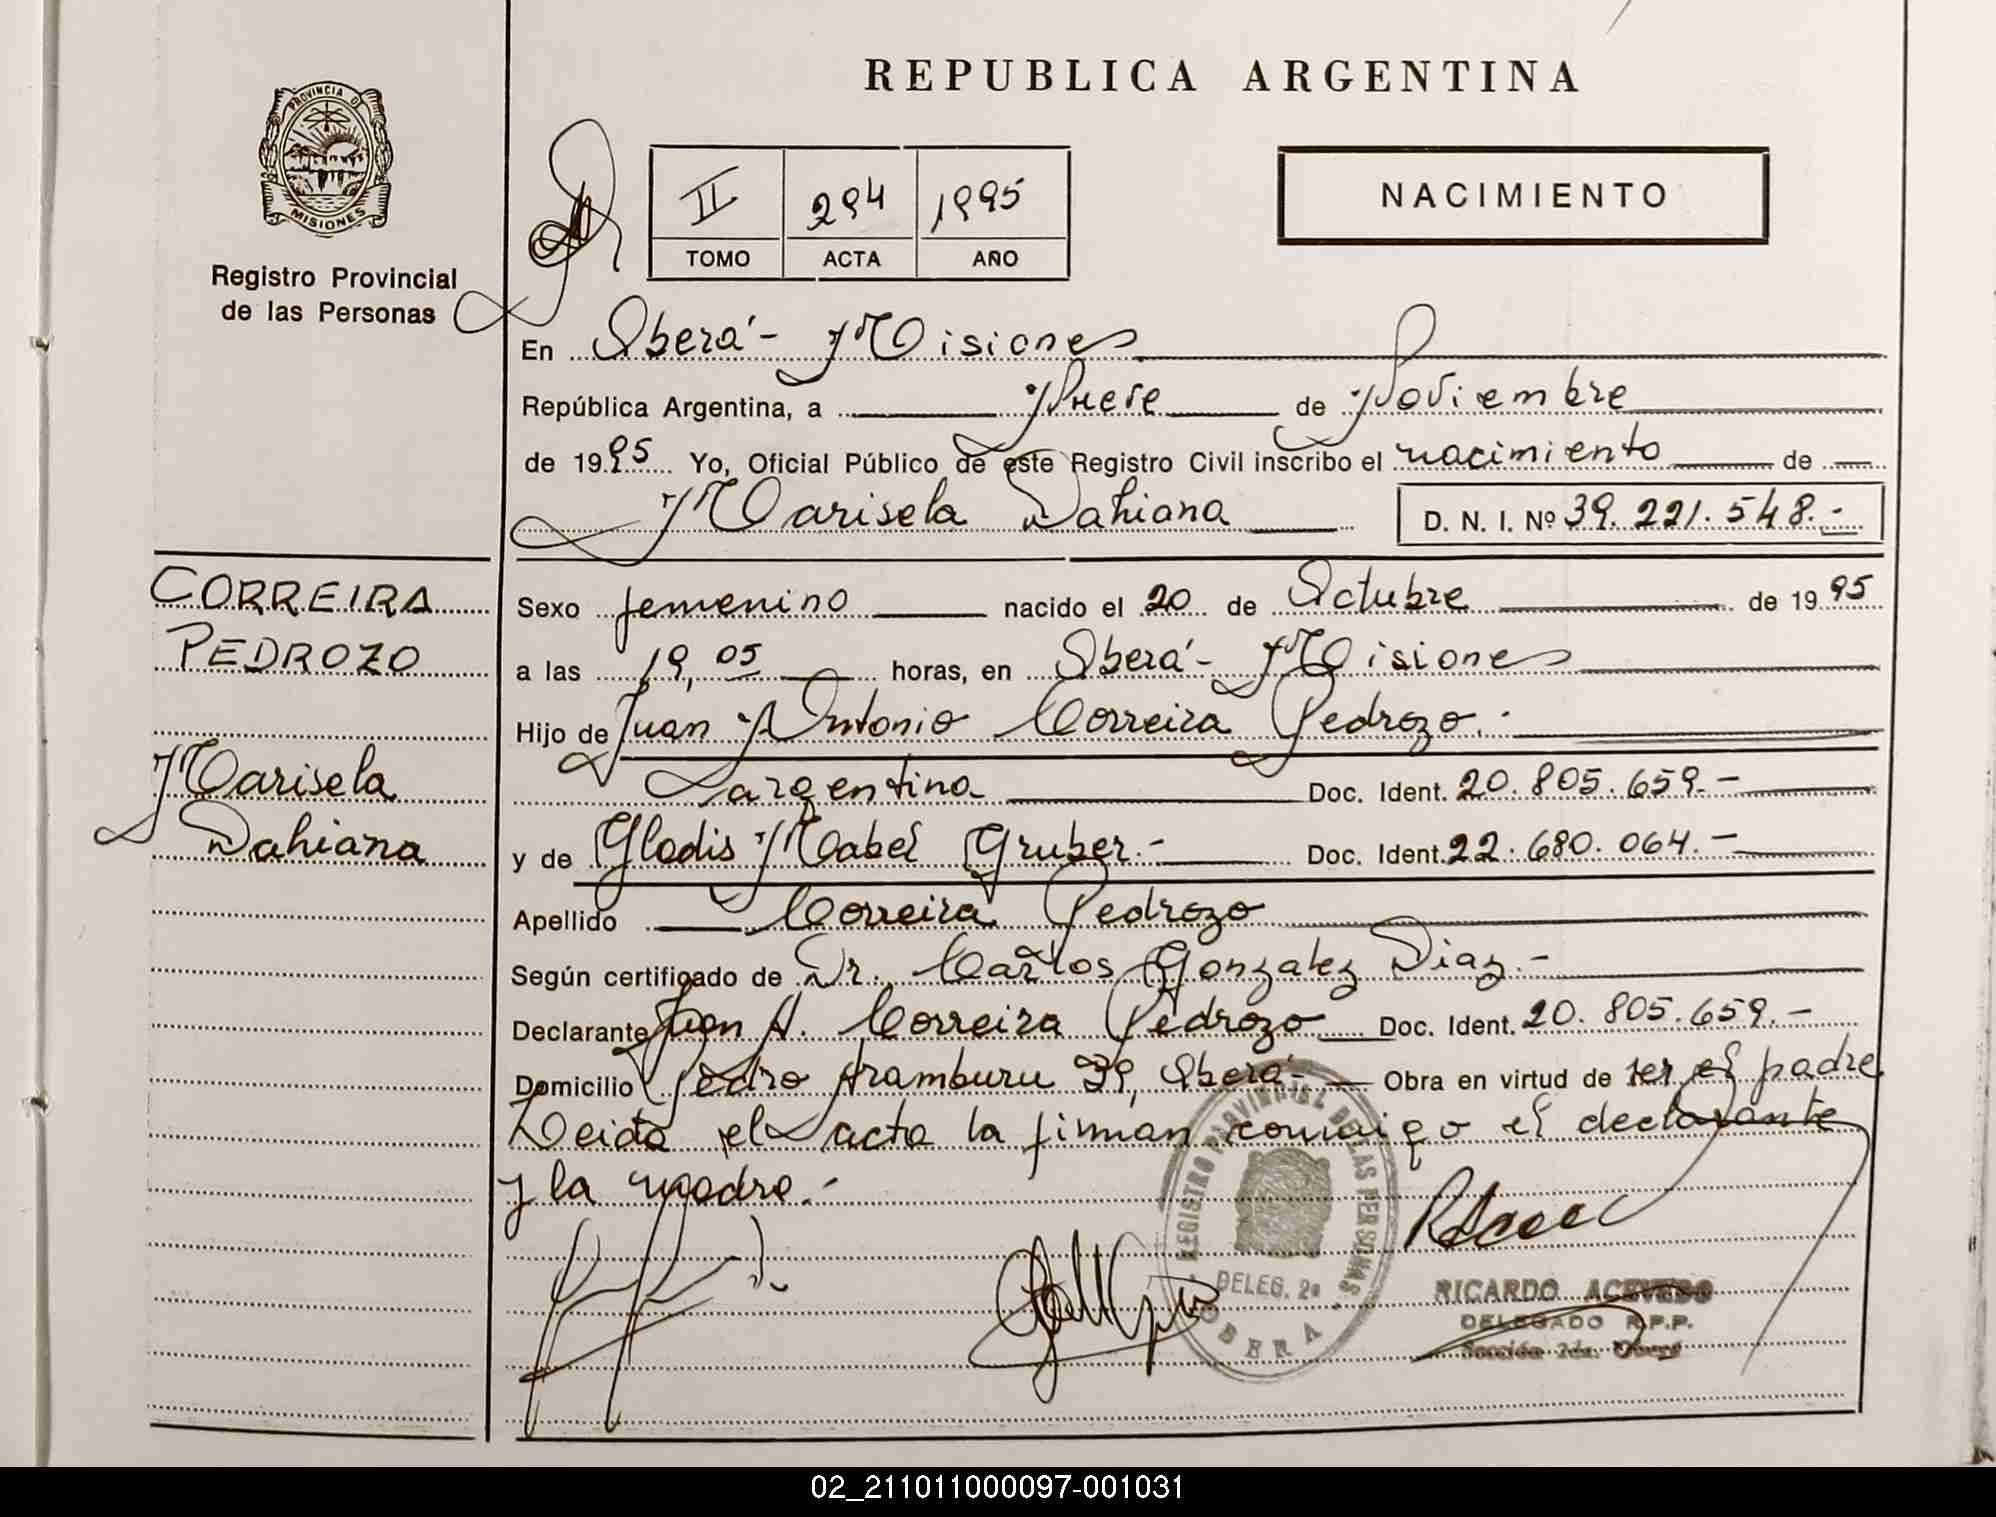 REPUBLICA ARGENTINA
PROVINCIA DE
MISIONES
Registro Provincial
de las Personas
II 294 1995
TOMO ACTA AÑO
NACIMIENTO
En Oberá - Misiones
República Argentina, a Nueve de Noviembre
de 1995 Yo, Oficial Público de este Registro Civil inscribo el nacimiento de
Marisela Dahiana D. N. I. Nº 39.221.548.-
CORREIRA
PEDROZO
Marisela
Dahiana
Sexo femenino nacido el 20 de Octubre de 1995
a las 19,05 horas, en Oberá - Misiones
Hijo de Juan Antonio Correira Pedrozo.-
argentino Doc. Ident. 20.805.659.-
y de Gladis Mabel Gruber.- Doc. Ident. 22.680.064.-
Apellido Correira Pedrozo
Según certificado de Dr. Carlos Gonzalez Diaz.-
Declarante Juan A. Correira Pedrozo Doc. Ident. 20.805.659.-
Domicilio Pedro Aramburu 39, Oberá - Obra en virtud de ser el padre
Leida el acta la firman conmigo el declarante
y la madre.-
REGISTRO PROVINCIAL DE LAS PERSONAS
DELEG. 2ª
OBERA
RICARDO ACEVEDO
DELEGADO R.P.P.
Sección 2da. Oberá
02_211011000097-001031